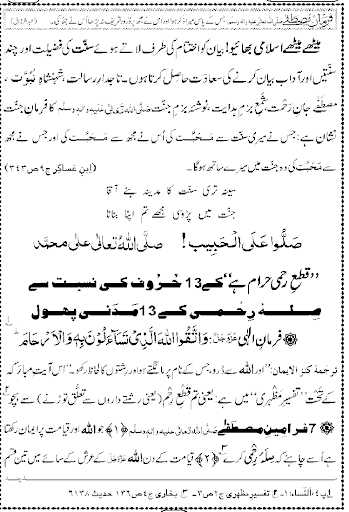 فرمانِ مصطفٰے صلَّی اللہ تعالٰی علیہ والہٖ وسلَّم: جس کے پاس میرا ذکر ہوا اور اس نے مجھ پر دُرُود شریف نہ پڑھا اُس نے جفا کی۔ (عبدالرزاق)
میٹھے میٹھے اسلامی بھائیو! بیان کو اختتام کی طرف لاتے ہوئے سنّت کی فضیلت اور چند
سنّتیں اور آداب بیان کرنے کی سعادت حاصل کرتا ہوں۔ تاجدارِ رسالت، شَہَنشاہِ نُبُوَّت،
مصطَفٰے جانِ رحمت، شمعِ بزمِ ہدایت، نوشۂ بزمِ جنّت صلَّی اللہُ تعالٰی علیہ والہٖ وسلَّم کا فرمانِ جنّت
نشان ہے: جس نے میری سنّت سے مَحَبَّت کی اُس نے مجھ سے مَحَبَّت کی اور جس نے مجھ
سے مَحَبَّت کی وہ جنّت میں میرے ساتھ ہو گا۔ (ابنِ عساکِر ج۹ ص۳۴۳)
سینہ تری سنّت کا مدینہ بنے آقا
جنّت میں پڑوسی مجھے تم اپنا بنانا
صَلُّوا عَلَی الْحَبِیب! صلَّی اللہُ تعالٰی علٰی محمَّد
’’قطعِ رحمی حرام ہے‘‘ کے 13 حُرُوف کی نسبت سے
صِلَۂ رِحمی کے 13 مَدَنی پھول
فرمانِ الٰہی عَزَّوَجَلَّ: وَاتَّقُوا اللّٰہَ الَّذِیْ تَسَآءَلُوْنَ بِہٖ وَالْاَرْحَامَ ؕ
ترجَمۂ کنز الایمان: ’’اور اللہ سے ڈرو جس کے نام پر مانگتے ہو اور رشتوں کا لحاظ رکھو۔‘‘ اس آیتِ مبارَکہ
کے تحت ’’تفسیرِ مظہری‘‘ میں ہے: یعنی تم قطعِ رِحم (یعنی رشتے داروں سے تعلُّق توڑنے) سے بچو
7 فرامینِ مصطَفٰے صلَّی اللہُ تعالٰی علیہ والہٖ وسلَّم ﴿۱﴾ جو اللہ اور قیامت پر ایمان رکھتا
ہے اُسے چاہئے کہ صِلَۂ رِحمی کرے ﴿۲﴾ قیامت کے دن اللہ عَزَّوَجَلَّ کے عرش کے سائے میں تین قسم
پ۴، النساء: ۱ تفسیرِ مظہری ج۲ ص۳ بخاری ج۴ ص۱۳۶ حدیث ۶۱۳۸